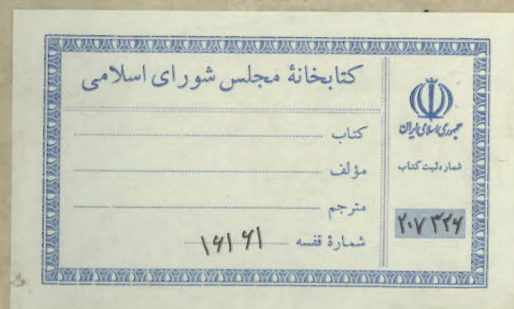 کتابخانهٔ مجلس شورای اسلامی
کتاب
مؤلف
مترجم
شمارهٔ قفسه ۱۶۱۶۱
جمهوری اسلامی ایران
شماره ثبت کتاب
۲۰۷۳۲۶